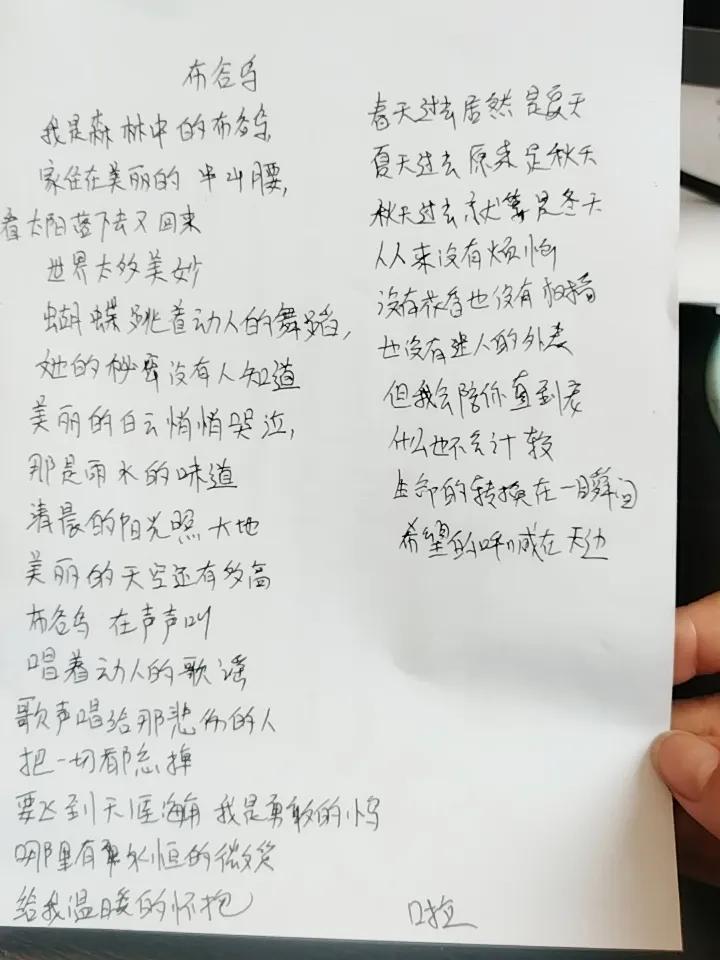 布谷鸟
我是森林中的布谷鸟,
家住在美丽的 半山腰,
看太阳落下去又回来
世界太多美妙
蝴蝶跳着动人的舞蹈,
她的秘密没有人知道
美丽的白云悄悄哭泣,
那是雨水的味道
清晨的阳光照大地
美丽的天空还有多高
布谷鸟 在声声叫
唱着动人的歌谣
歌声唱给那悲伤的人
把一切都忘掉
要飞到天涯海角 我是勇敢的小鸟
哪里有永恒的微笑
给我温暖的怀抱
春天过去居然是夏天
夏天过去原来是秋天
秋天过去就算是冬天
从来没有烦恼
没有花香也没有
也没有迷人的外表
但我会陪你直到老
什么也不会计较
生命的转换在一瞬间
希望的呼喊在天边